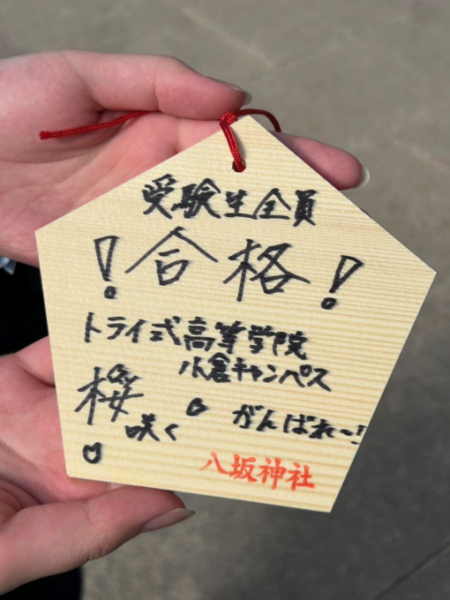 受験生全員
！合格！
トライ式高等学院
小倉キャンパス
桜咲く
がんばれ〜！
八坂神社